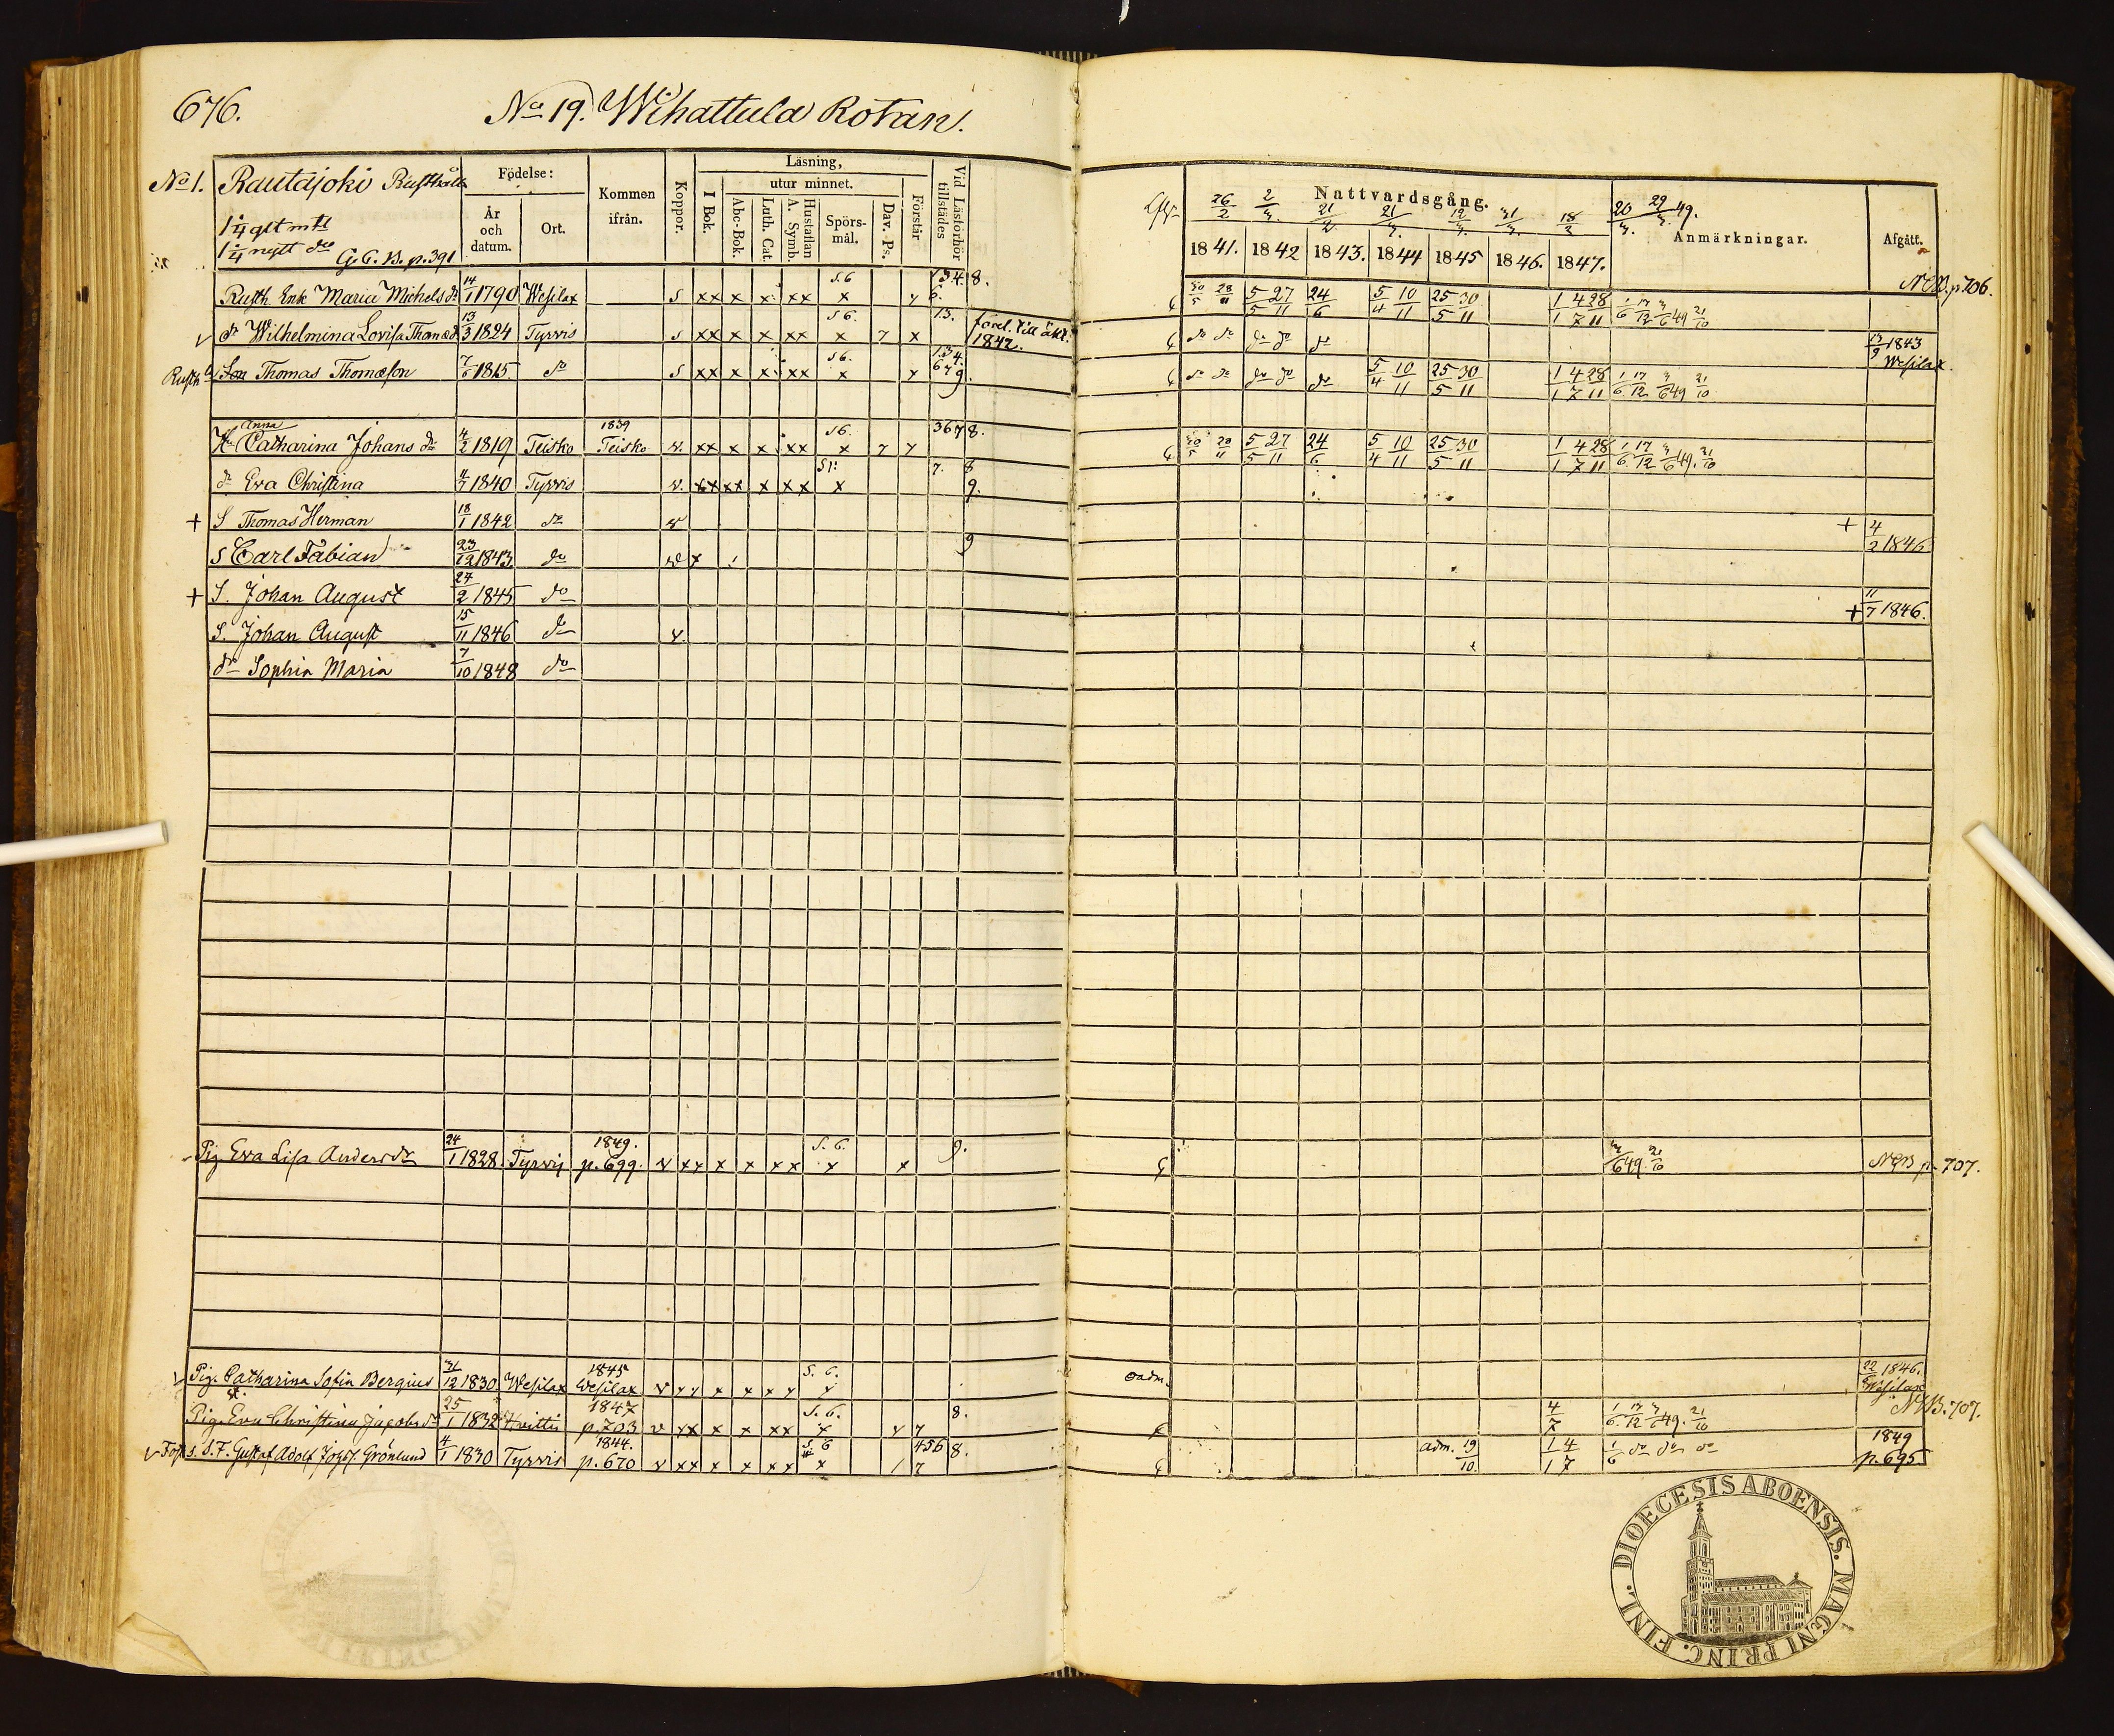 676. No 19. Wihattula Rotan.
No 1. Rautajoki Rusthåll
1/4 glt mtl
1/4 nytt dto G. C. B. p. 391
Födelse:
År och datum.
Ort.
Kommen ifrån.
Koppor.
Läsning,
I Bok.
utur minnet.
Abc-Bok.
Luth. Cat.
Hustaflan A. Symb.
Spörs-mål.
Dav. Ps.
Förstår
Vid Läsförhör tillstädes
Nattvardsgång.
26/2 2/3 21/2 21/3 12/3 31/3 18/2 20/3 29/3 49.
1841. 1842 1843. 1844 1845 1846. 1847.
Anmärkningar.
Afgått.
N.C.B. p. 706.
Rusth. Enk. Maria Michelsdr 14/1 1790 Wesilax s xx x x xx s.6 x y 134 6. 8. 30/5 28/11 5/5 27/11 24/6 5/4 10/11 25/5 30/11 1/1 4/7 28/11 1/6 17/12 3/6 49 21/10
v dr Wilhelmina Lovisa Thomædr 13/3 1824 Tyrvis s xx x x xx s6. x 7 x 13. förel. till äkt. 1842. do do do do do 17/9 1843 Wesilax.
Rusth. Son Thomas Thomæson 7/6 1815. do s xx x x xx s6. x y 134. 679. do do do do do 5/4 10/11 25/5 30/11 1/1 4/7 28/11 1/6 17/12 3/6 49 21/10
H. Anna Catharina Johansdr 4/2 1819 Teisko 1839 Teisko v. xx x x xx s6. x 7 y 3678. 30/5 28/11 5/5 27/11 24/6 5/4 10/11 25/5 30/11 1/1 4/7 28/11 1/6 17/12 3/6 49. 21/10
dr Eva Christina 4/7 1840 Tyrvis v. xx xx x xx S1: x 7. 8 9.
+ S Thomas Herman 18/1 1842 do v + 4/2 1846
S Carl Fabian 23/12 1843 do v x 9
+ S. Johan August 24/2 1845 do + 11/7 1846.
S. Johan August 15/11 1846 do v.
dr Sophia Maria 7/10 1848 do
Pig Eva Lisa Andersdr 24/1 1828. Tyrvis 1849. p. 699. v xx x x xx s. 6. x x 9. 3/6 49. 21/10 NCB p. 707.
v Pig. Catharina Sofia Bergius 31/12 1830. Wesilax 1845 Wesilax v s. 6. oadm. 22 1846. Wesilax
Pig. Eva Christina Jacobsdr 25/1 1832 Hvittis 1847 p. 703 v xx x x xx s. 6. x y 7 8. 4/7 1/6 17/12 3/6 49. 21/10 NCB. 707.
v S. F. Gustaf Adolf Grönlund 4/1 1830 Tyrvis 1844. p. 670 v xx x x xx s. 6 x 1 7 456 8. adm. 19/10. 1/1 4/7 1/6 do do do 1849 p. 695
FINL. DIOECESIS ABOENSIS. MAGNI PRINC.